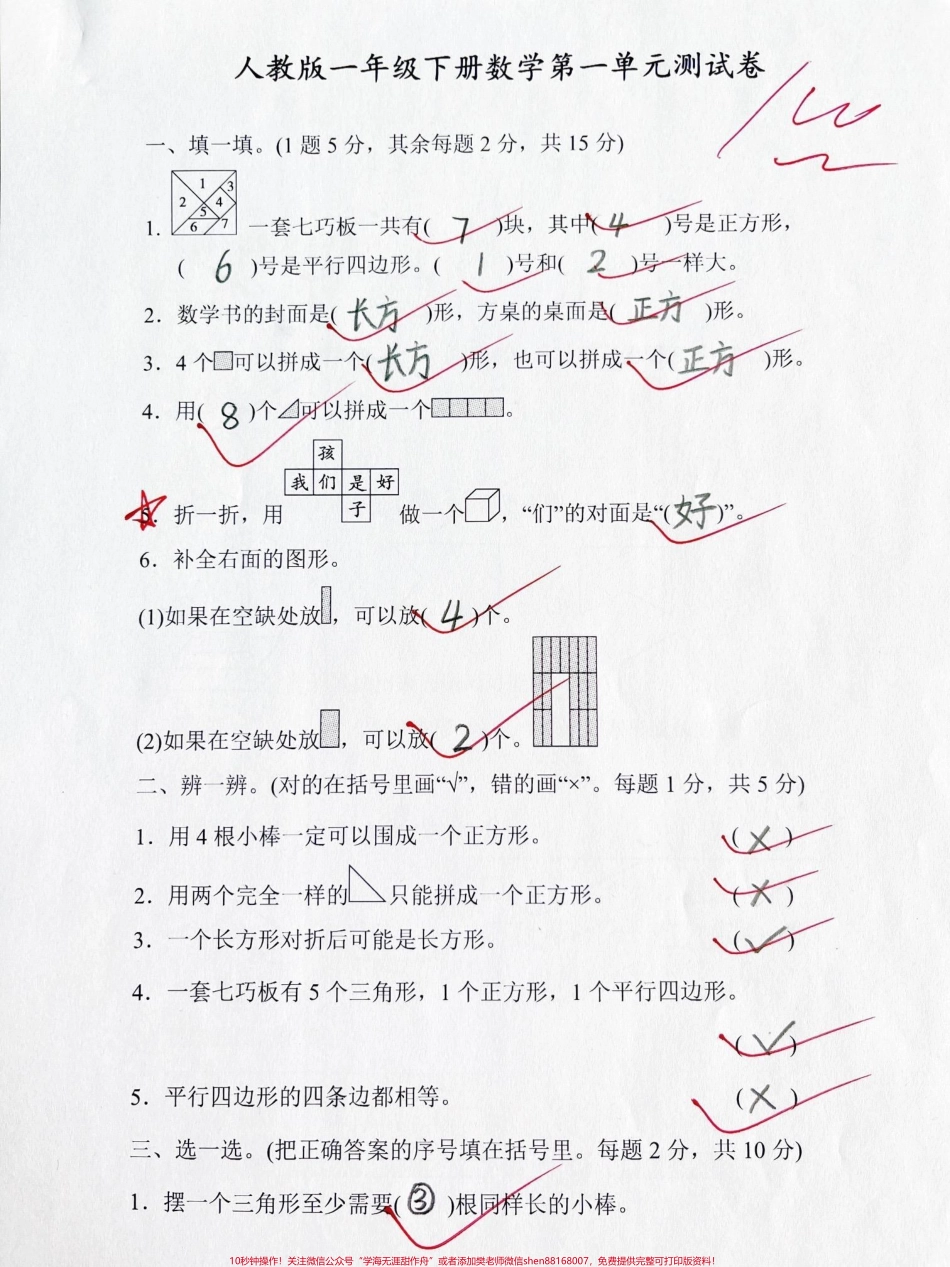 人教版一年级下册数学第一单元测试卷
100
一、填一填。(1题5分，其余每题2分，共15分)
1 2 3 4 5 6 7
1. 一套七巧板一共有( 7 )块，其中( 4 )号是正方形，
( 6 )号是平行四边形。( 1 )号和( 2 )号一样大。
2．数学书的封面是( 长方 )形，方桌的桌面是( 正方 )形。
3．4个可以拼成一个( 长方 )形，也可以拼成一个( 正方 )形。
4．用( 8 )个可以拼成一个。
孩
我 们 是 好
子
5．折一折，用 做一个，“们”的对面是“( 好 )”。
6．补全右面的图形。
(1)如果在空缺处放，可以放( 4 )个。
(2)如果在空缺处放，可以放( 2 )个。
二、辨一辨。(对的在括号里画“√”，错的画“×”。每题1分，共5分)
1．用4根小棒一定可以围成一个正方形。 ( × )
2．用两个完全一样的只能拼成一个正方形。 ( × )
3．一个长方形对折后可能是长方形。 ( √ )
4．一套七巧板有5个三角形，1个正方形，1个平行四边形。
( √ )
5．平行四边形的四条边都相等。 ( × )
三、选一选。(把正确答案的序号填在括号里。每题2分，共10分)
1．摆一个三角形至少需要( ③ )根同样长的小棒。
10秒钟操作！关注微信公众号“学海无涯甜作舟”或者添加樊老师微信shen88168007，免费提供完整可打印版资料！